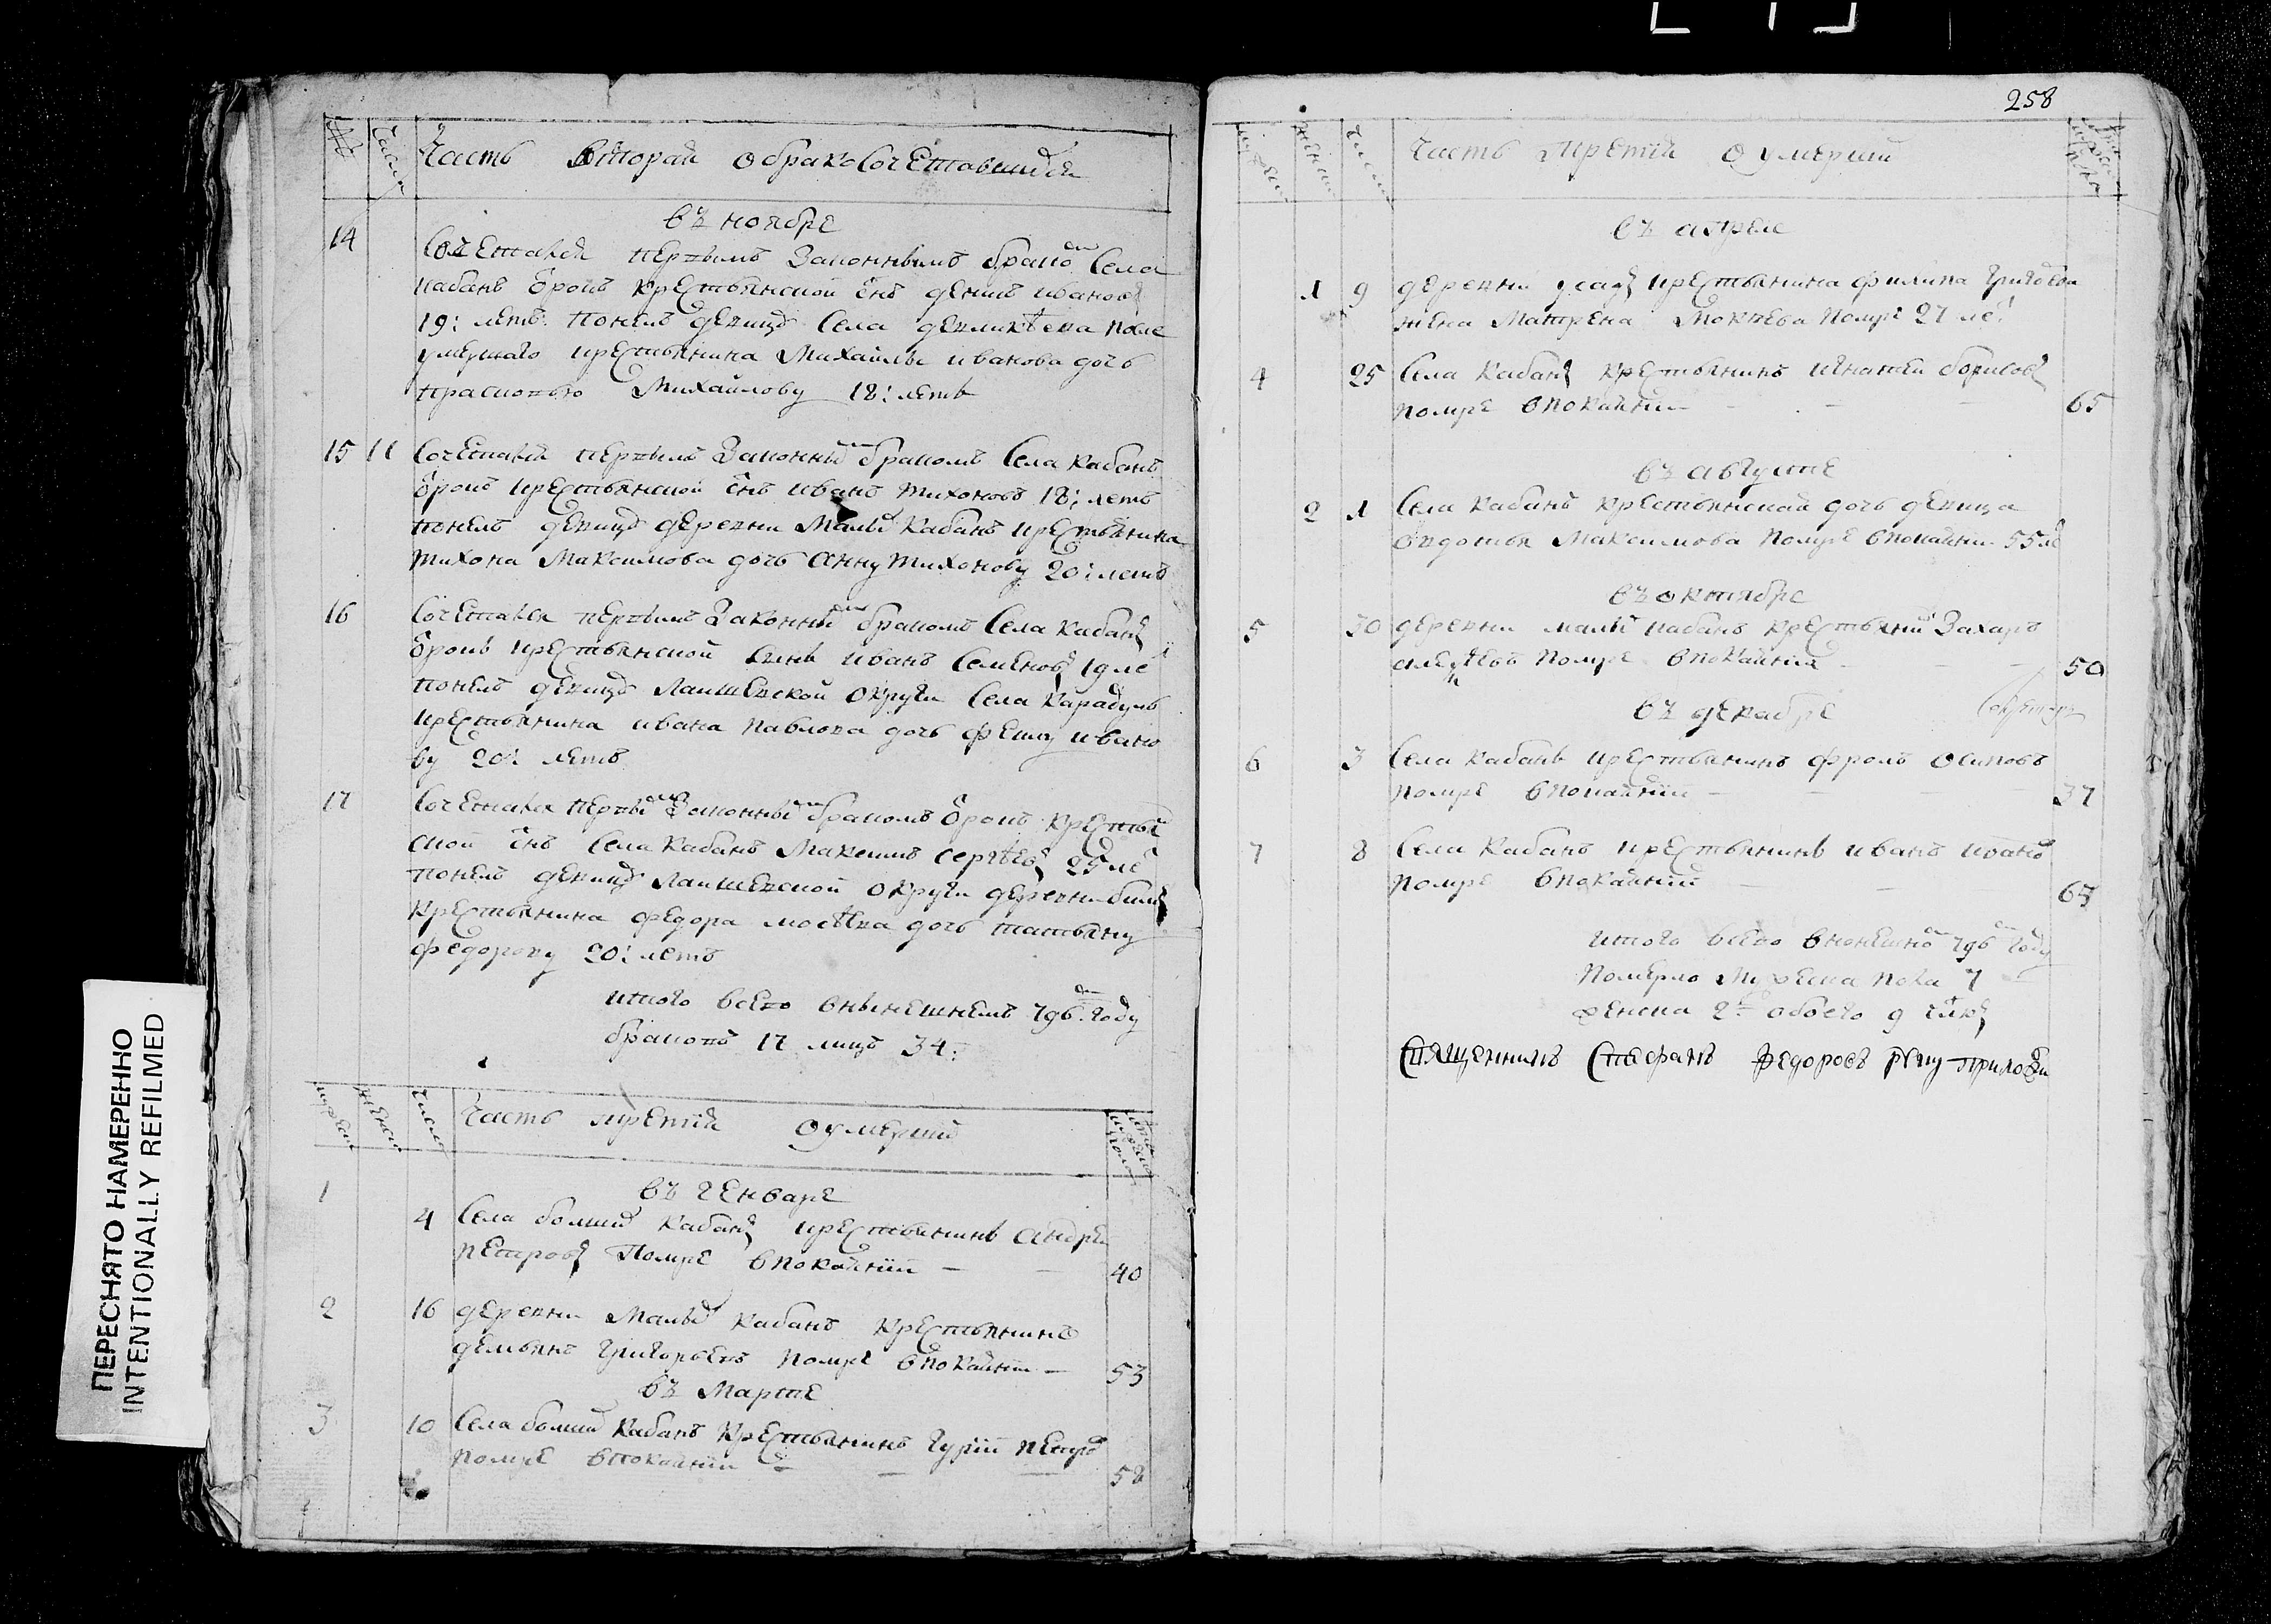 № числа Часть вторая о бракосочетавшихся
въ ноябре
14 Сочетался первымъ Законнымъ бракомъ Села
Кабанъ отрокъ крестьянской снъ денисъ иванов
19: летъ понелъ девицу Села девликѣева после
умершаго крестьянина Михайлы иванова дочь
прасковью Михайлову 18: летъ
15 11 Сочетался первымъ Законным бракомъ Села Кабанъ
отрокъ крестьянской снъ иванъ тихоновъ 18: летъ
понелъ девицу деревни Малых Кабанъ крестьянина
тихона Максимова дочь Анну тихонову 20: летъ
16 Сочетался первымъ Законным бракомъ Села Кабан
отрокъ крестьянской сынъ иванъ Семенов 19 ле
понелъ девицу Лаишевской округи Села Карадулъ
крестьянина ивана Павлова дочь феклу ивано
ву 20: летъ
17 Сочетался первым Законным бракомъ отрокъ крестьян
ской снъ Села Кабанъ Максимъ сергѣев 25 ле
понелъ девицу Лаишевской округи деревни
крестьянина федора дочь татьяну
федорову 20: летъ
итого всего внынешнемъ 796м году
браковъ 17 лицъ 34:
мужеск женск числа Часть третия о умерших
въ генваре
1 4 Села больших Кабан крестьянинъ андреи
петров Помре впокаянии — — 40
2 16 деревни Малых Кабанъ крестьянинъ
демьянъ григорьевъ помре впокаянии — 53
въ Марте
3 10 Села больших Кабанъ крестьянинъ гурiй петров
помре впокаянии — — — 58
258
мужеск женск числа Часть третия о умерших
въ апреле
1 9 деревни усад крестьянина филипа григорева
жена Матрена Мокеева помре 27 ле
4 25 Села Кабан крестьянинъ игнатей борисов
помре впокаянии — — — 65
въ августе
2 1 Села Кабанъ крестьянская дочь девица
овдотья Максимова помре впокаянии 55 ле
въ октябре
5 30 деревни малых кабанъ крестьянин Захаръ
алексѣевъ помре впокаянии — — — 50
въ декабре
секретарь
6 3 Села Кабанъ крестьянинъ фролъ осиповъ
помре впокаянии — — — 37
7 8 Села Кабанъ крестьянинъ иванъ иванов
помре впокаянии — — 67
итого всего внонешном 796м году
померло мужеска пола 7
женска 2 обоего 9
Священникъ Стефанъ Федоровъ руку приложил
ПЕРЕСНЯТО НАМЕРЕННО
INTENTIONALLY REFILMED